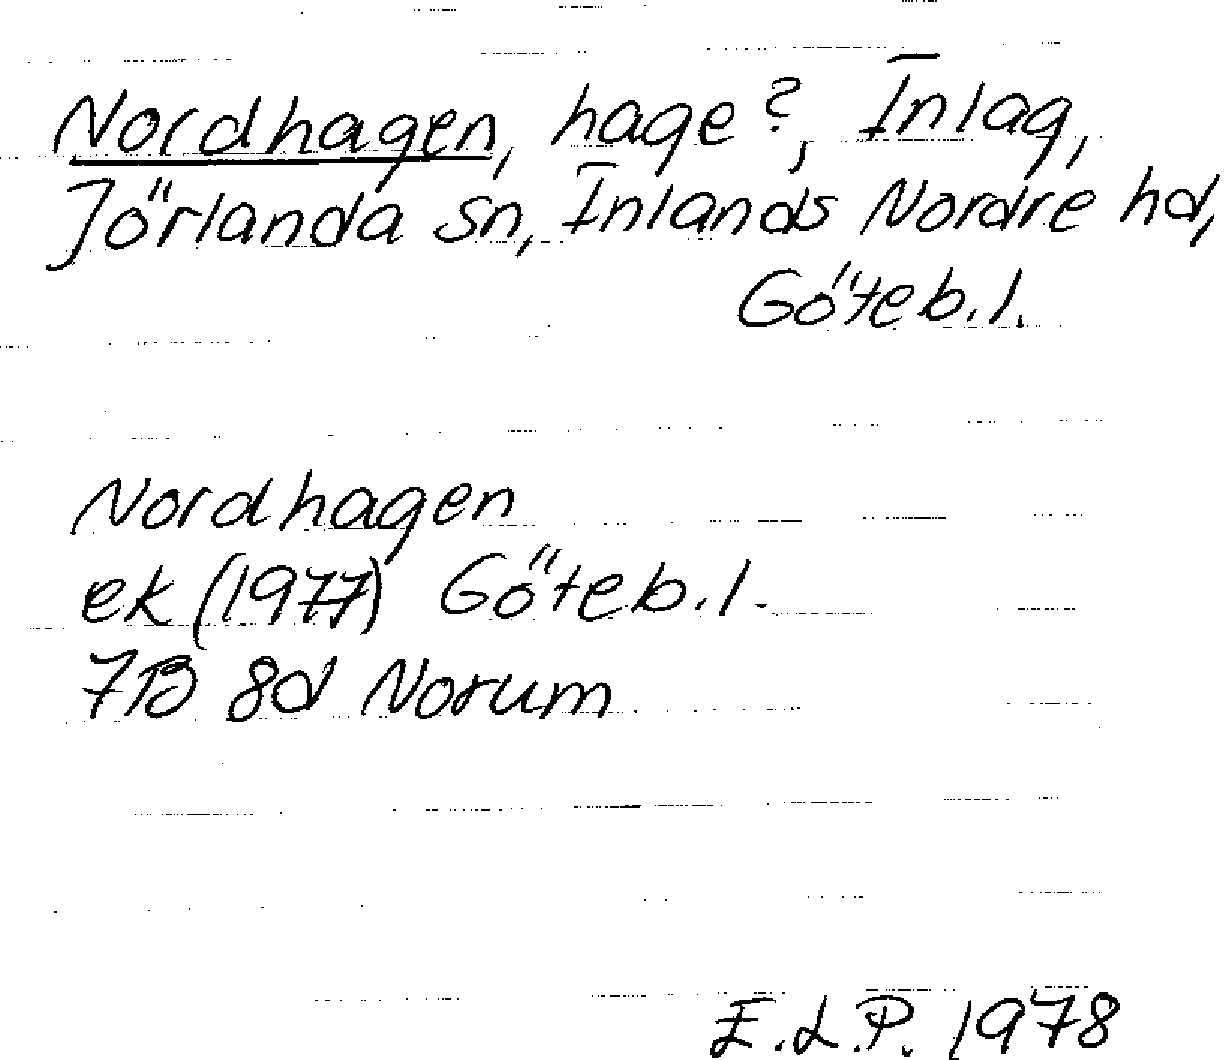 Nordhagen, hage?, Inlag,
Jörlanda sn, Inlands Nordre hd,
Göteb.l.
Nordhagen
ek (1977) Göteb.l.
7B 8d Norum
E.L.P. 1978